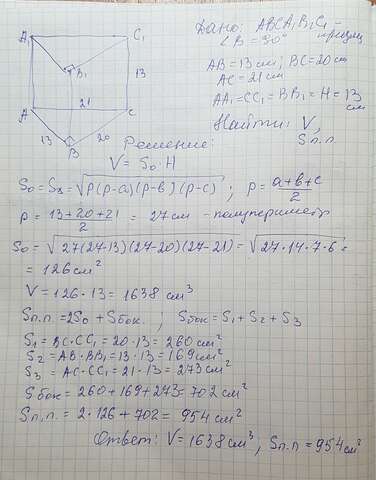 Дано: ABCA₁B₁C₁ –
призма
∠B = 90°
AB = 13 см; BC = 20 см
AC = 21 см
AA₁ = CC₁ = BB₁ = H = 13 см
Найти: V,
Sп.п.
A₁
C₁
B₁
13
21
A
C
13
20
B
Решение:
V = S₀ · H
S₀ = S△ = √p(p-a)(p-b)(p-c) ; p = a+b+c/2
p = 13+20+21/2 = 27 см – полупериметр
S₀ = √27(27-13)(27-20)(27-21) = √27·14·7·6 =
= 126 см²
V = 126 · 13 = 1638 см³
Sп.п. = 2S₀ + Sбок. ; Sбок = S₁ + S₂ + S₃
S₁ = BC · CC₁ = 20 · 13 = 260 см²
S₂ = AB · BB₁ = 13 · 13 = 169 см²
S₃ = AC · CC₁ = 21 · 13 = 273 см²
Sбок = 260 + 169 + 273 = 702 см²
Sп.п. = 2 · 126 + 702 = 954 см²
Ответ: V = 1638 см³, Sп.п = 954 см²